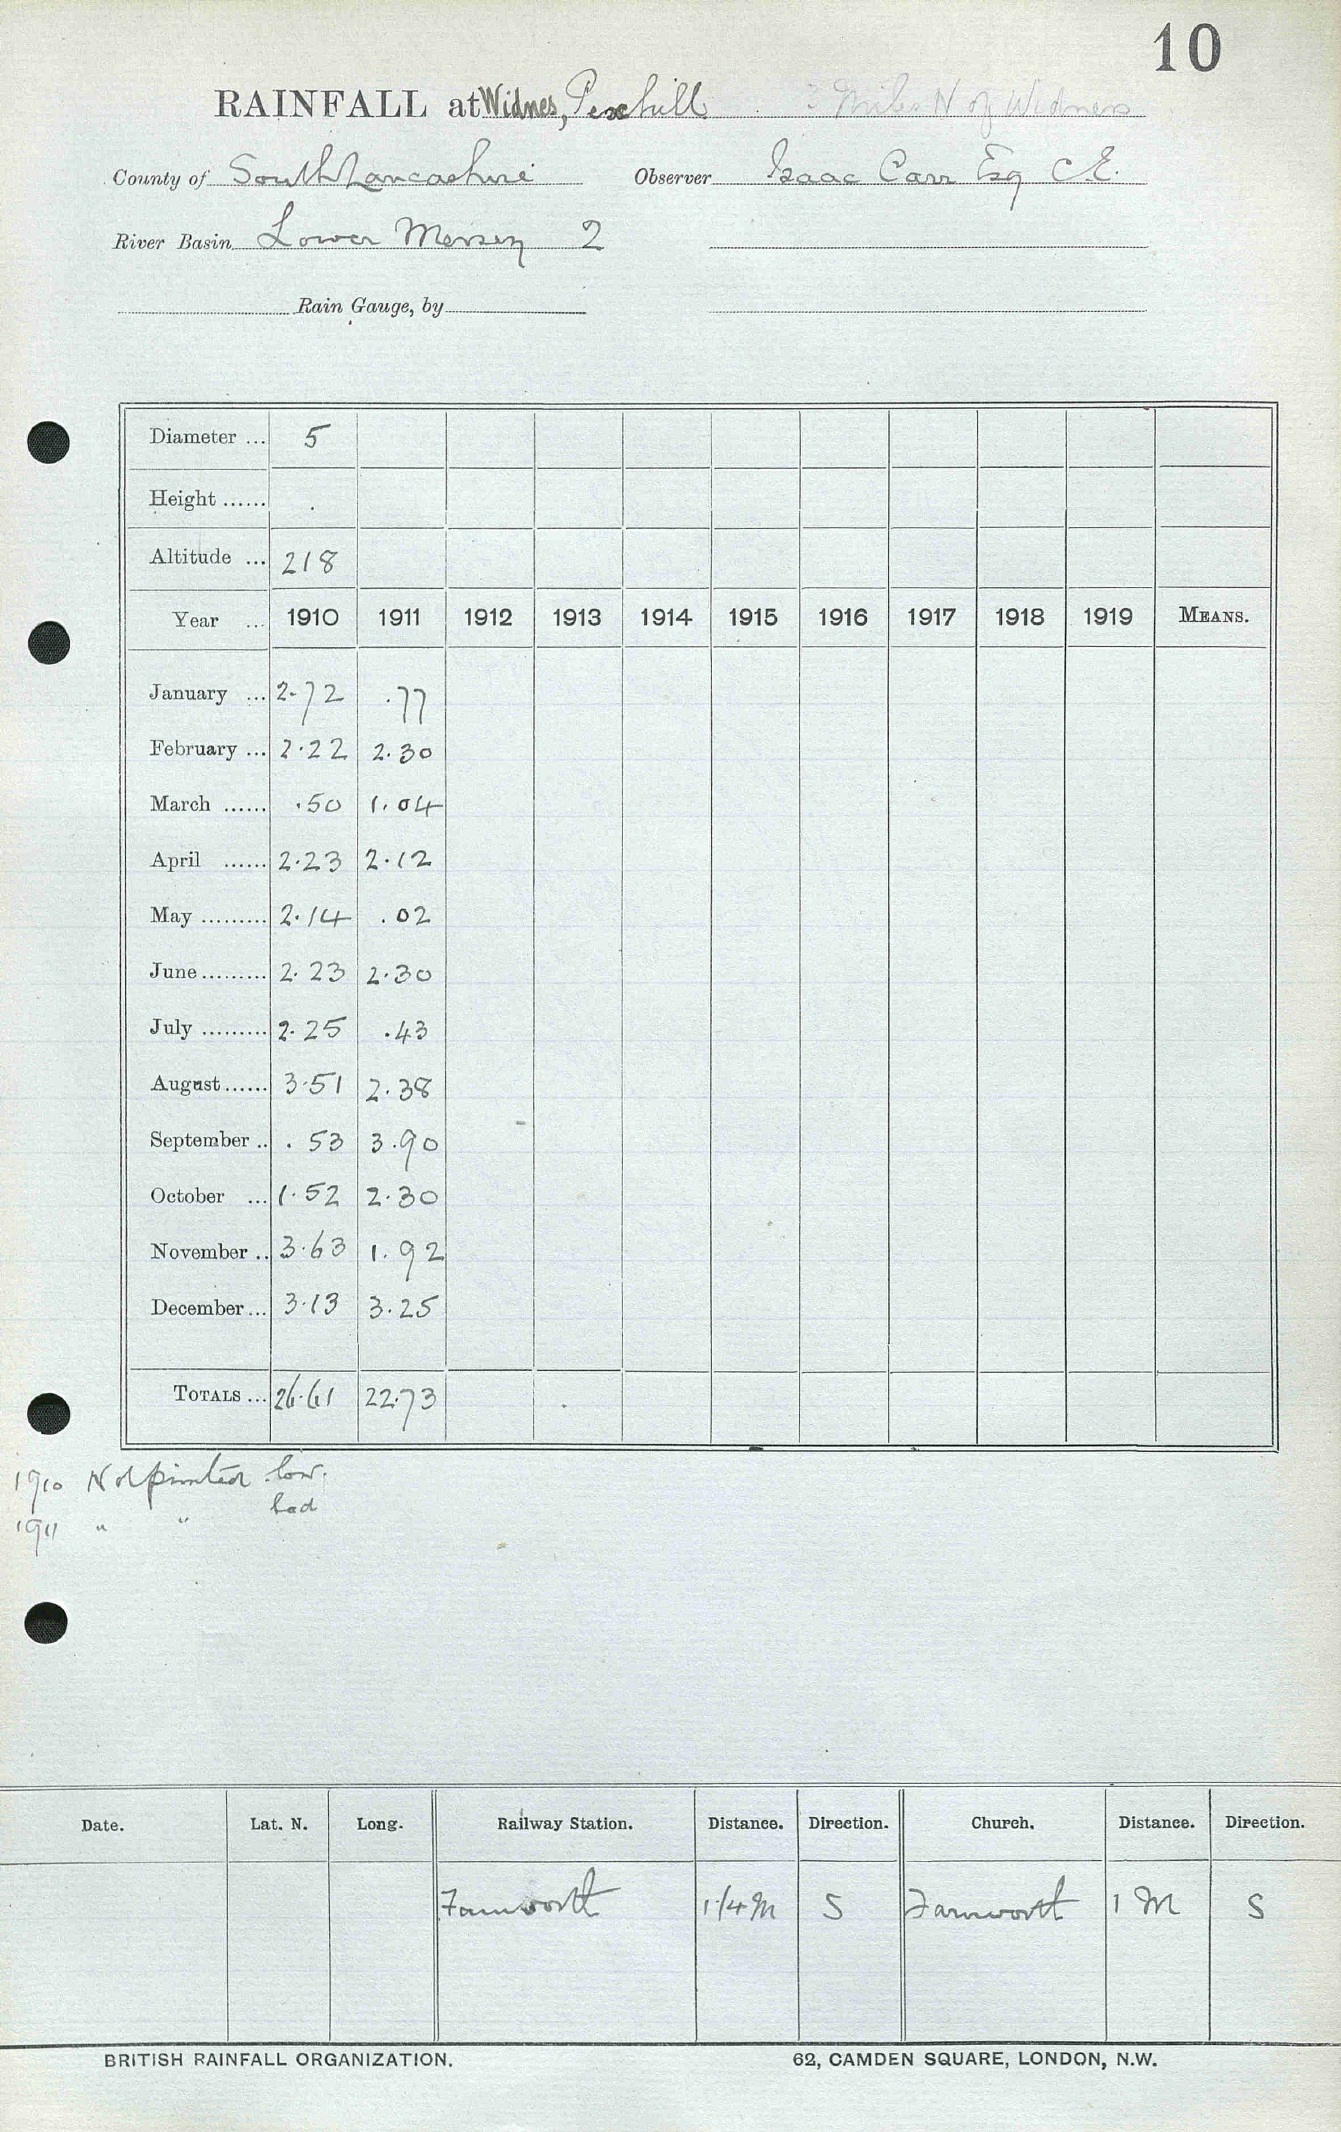 10
RAINFALL at Widnes, Pexhill 3 Miles N of Widness
County of South Lancashire Observer Isaac Carr Esq C.E.
River Basin Lower Mersey 2
Rain Gauge, by
Diameter ... 5
Height ......
Altitude ... 218
Year ... 1910 1911 1912 1913 1914 1915 1916 1917 1918 1919 MEANS.
January ... 2.72 .77
February ... 2.22 2.30
March ...... .50 1.04
April ...... 2.23 2.12
May ......... 2.14 .02
June ......... 2.23 2.30
July ......... 2.25 .43
August ...... 3.51 2.38
September .. .53 3.90
October ... 1.52 2.30
November .. 3.63 1.92
December ... 3.13 3.25
TOTALS ... 26.61 22.73
1910 Not printed low.
1911 " " bad
Date. Lat. N. Long. Railway Station. Distance. Direction. Church. Distance. Direction.
Farnworth 1 1/4 M S Farnworth 1 M S
BRITISH RAINFALL ORGANIZATION. 62, CAMDEN SQUARE, LONDON, N.W.